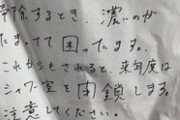 掃除するとき、濃いのが
たまってて困っています。
これからもされると、来年度は
シャワー室を閉鎖します。
注意してください。